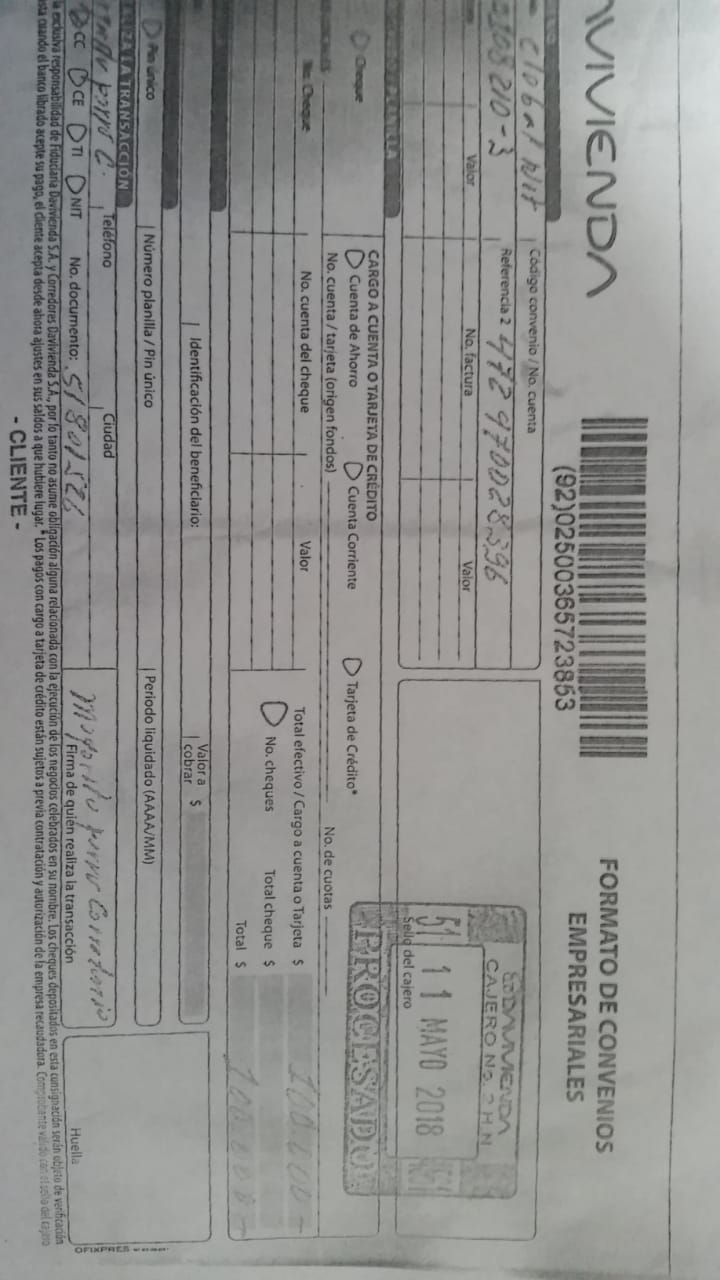 AVIVIENDA
FORMATO DE CONVENIOS
EMPRESARIALES
(92)02500365723853
Código convenio / No. cuenta
Global Nit
210-3
Referencia 2 472970028396
Valor
No. factura
Valor
DAVIVIENDA
CAJERO No.
51 11 MAYO 2018
Sello del cajero
PROCESADO
CARGO A CUENTA O TARJETA DE CRÉDITO
Cheque
Cuenta de Ahorro
Cuenta Corriente
Tarjeta de Crédito*
No. cuenta / tarjeta (origen fondos)
No. de cuotas
No. Cheque
No. cuenta del cheque
Valor
Total efectivo / Cargo a cuenta o Tarjeta $ 100.000
No. cheques
Total cheque $
Total $ 100.000
Identificación del beneficiario:
Valor a cobrar $
Pin único
Número planilla / Pin único
Periodo liquidado (AAAA/MM)
LA TRANSACCIÓN
Teléfono
Ciudad
CC CE TI NIT No. documento: 51801526
Firma de quién realiza la transacción
Huella
exclusiva responsabilidad de Fiduciaria Davivienda S.A. y Corredores Davivienda S.A., por lo tanto no asume obligación alguna relacionada con la ejecución de los negocios celebrados en su nombre. Los cheques depositados en esta consignación serán objeto de verificación
cuando el banco librado acepte su pago, el cliente acepta desde ahora ajustes en sus saldos a que hubiere lugar. *Los pagos con cargo a tarjeta de crédito están sujetos a previa contratación y autorización de la empresa recaudadora. Comprobante válido con el sello del cajero
- CLIENTE -
OFIXPRES